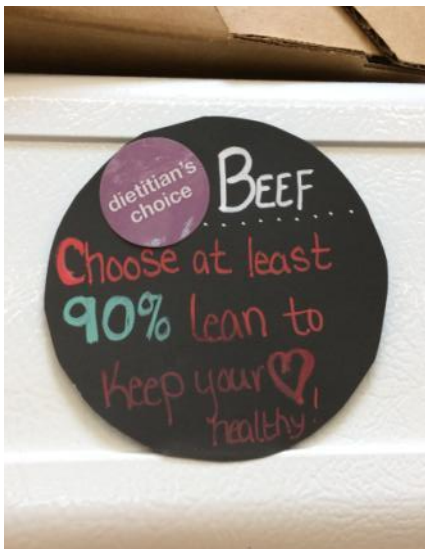 dietitian's
choice
BEEF
Choose at least
90% lean to
Keep your ♡
healthy!